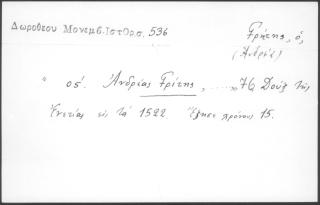 Δωροθεου Μονεμβ.Ιστορ. 536
Γρίτης, ὁ,
(Ἀνδρέας)
" οδ'. Ἀνδρέας Γρίτης, ......, 76 Δούξ τῆς
Ἑνετίας εἰς τὰ 1522. Ἔζησε χρόνους 15.